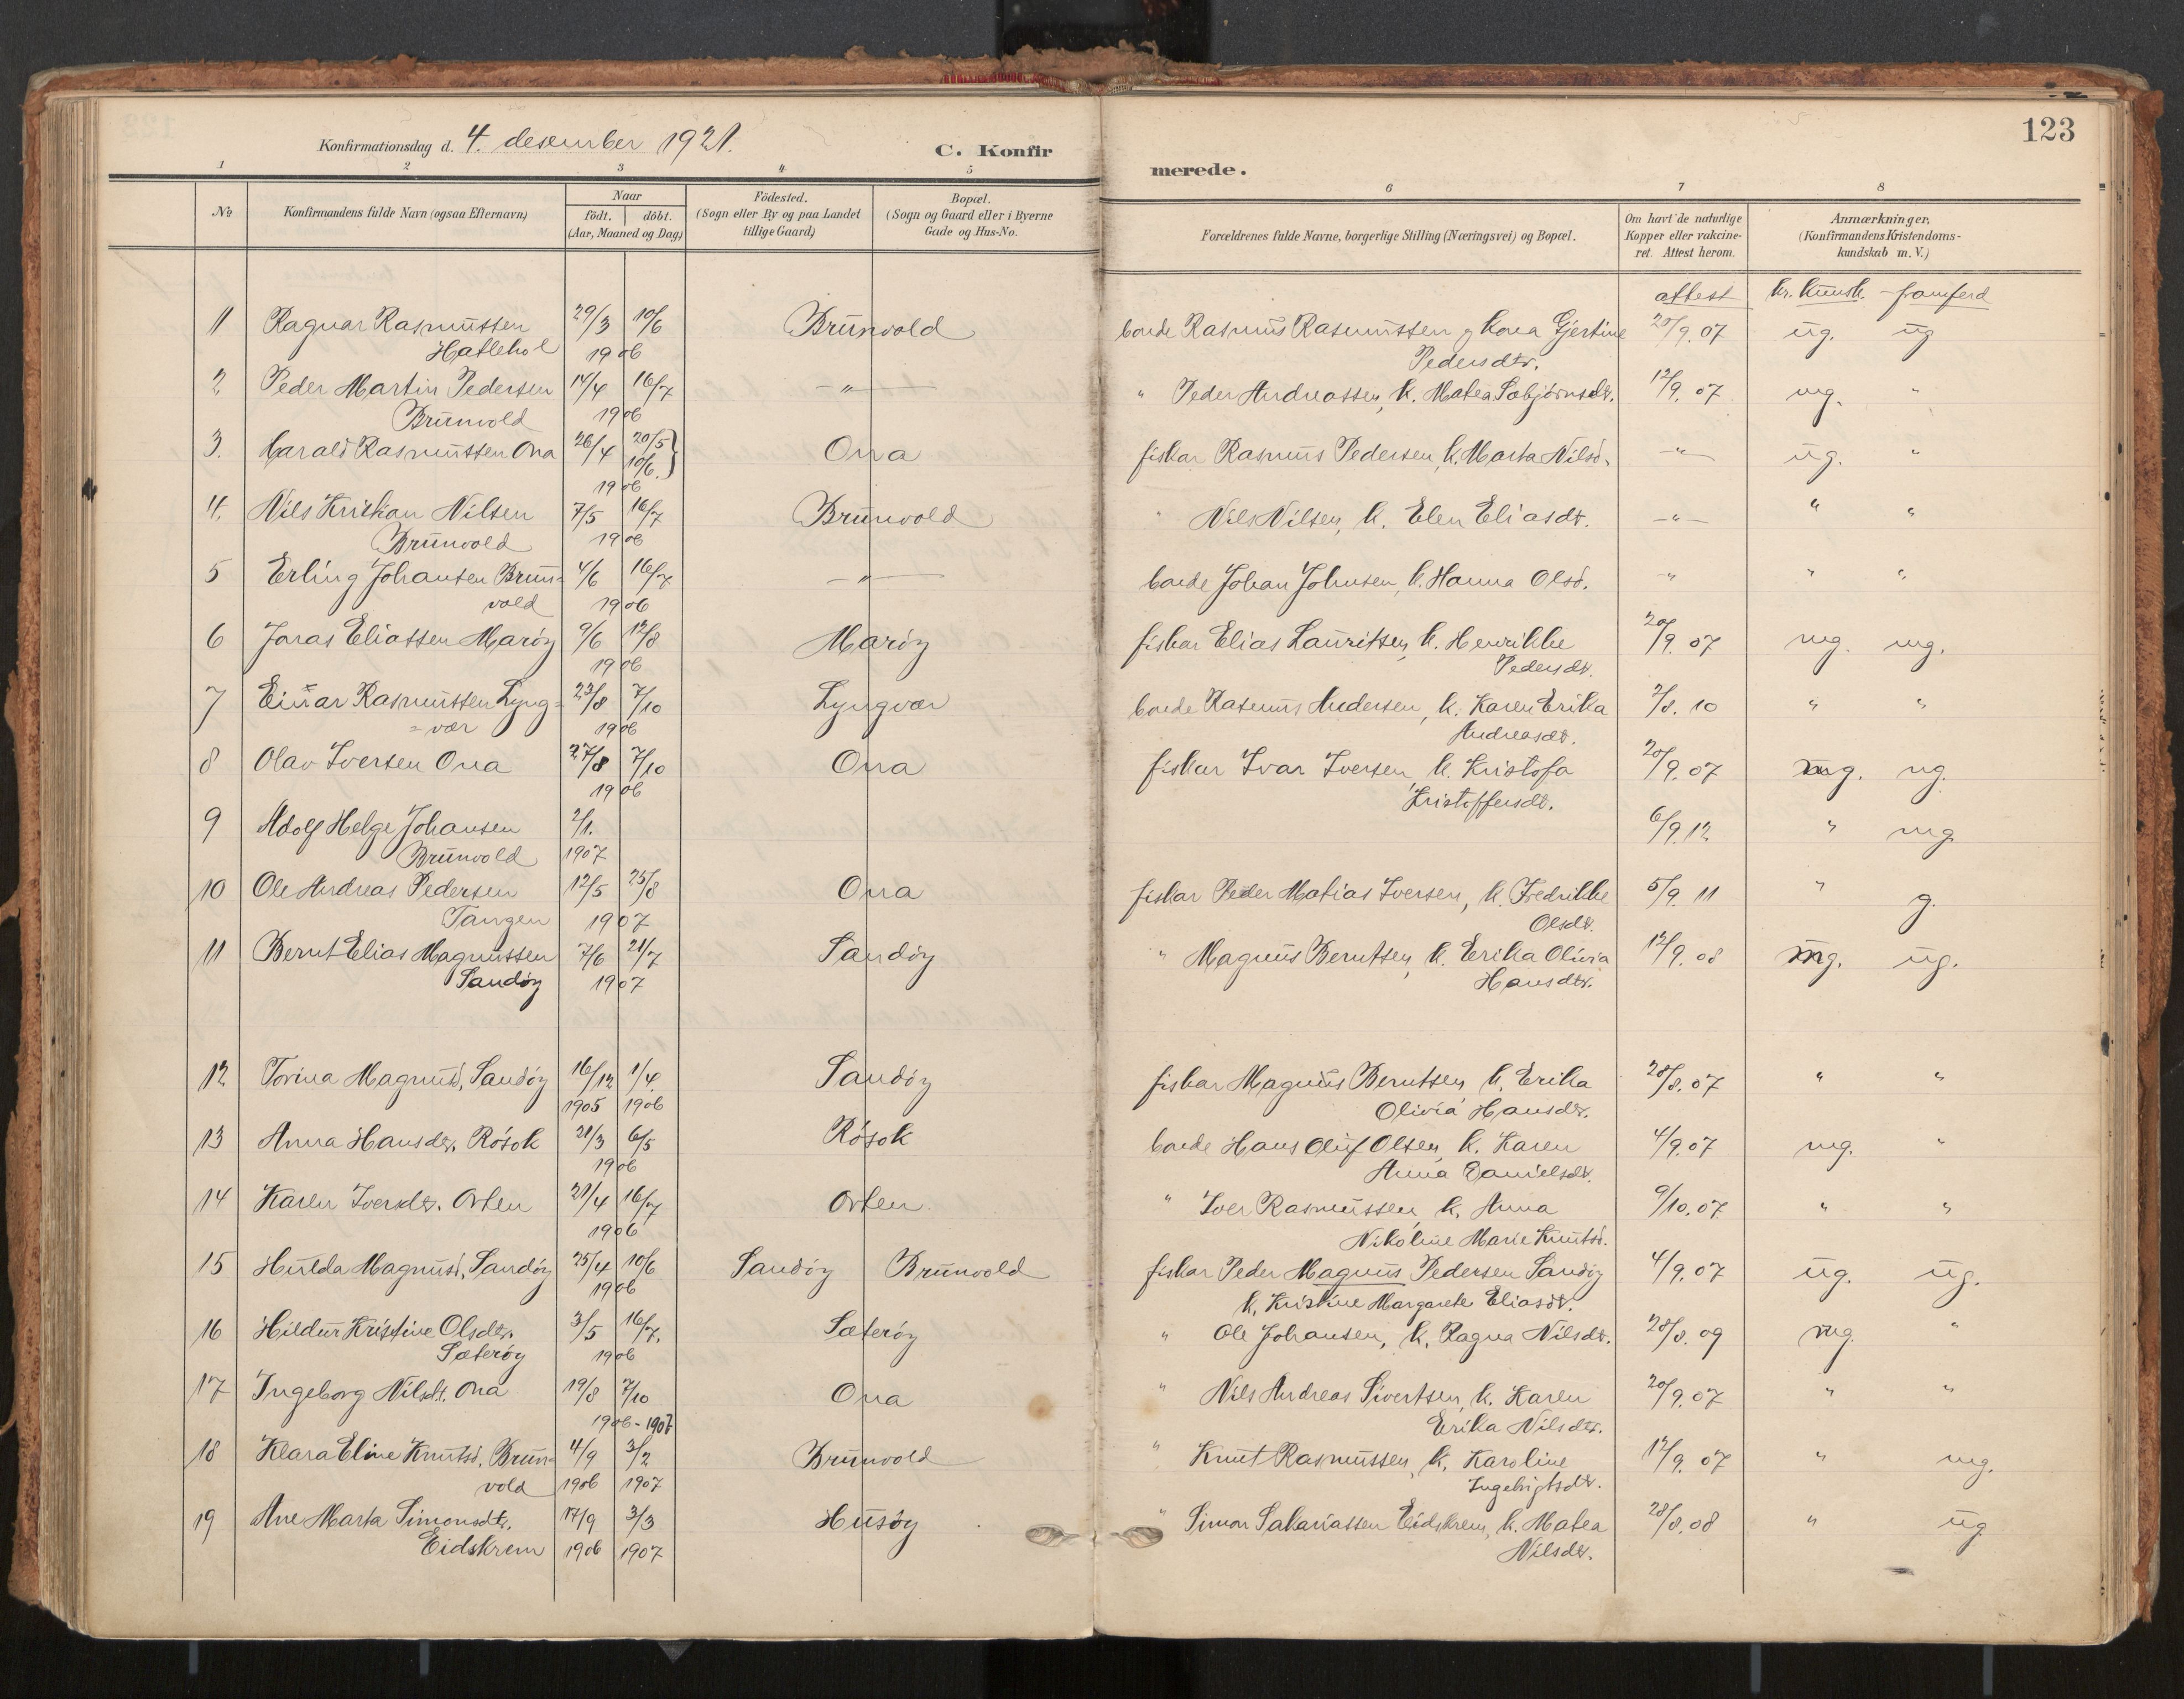 Konfirmationsdag d. 4. desember 1921.
C. Konfir
merede.
123
1 2 3 4 5 6 7 8
No Konfirmandens fulde Navn (ogsaa Efternavn) Naar födt. döbt. (Aar, Maaned og Dag) Födested. (Sogn eller By og paa Landet tillige Gaard) Bopæl. (Sogn og Gaard eller i Byerne Gade og Hus-No. Forældrenes fulde Navne, borgerlige Stilling (Næringsvei) og Bopæl. Om havt de naturlige Kopper eller vakcineret. Attest herom. Anmærkninger, (Konfirmandens Kristendomskundskab m.V.)
attest kr. kunsk. - framferd
11 Ragnar Rasmussen 29/3 10/6 Brunvold bonde Rasmus Rasmussen og kona Gjertine 20/9.07 ug. ug
Hatlehol 1906 Pedersdtr.
2 Peder Martin Pedersen 14/4 16/7 —"— " Peder Andreassen, k. Matea Sæbjørnsdt. 12/9.07 mg. "
Brunvold 1906
3. Harald Rasmussen Ona 26/4 20/5 10/6. } Ona fiskar Rasmus Pedersen, k. Marta Nilsd. —"— ug. "
1906
4. Nils Kristian Nilsen 7/5 16/7 Brunvold " Nils Nilsen, k. Elen Eliasdt. —"— " "
Brunvold 1906
5 Erling Johansen Brun= 4/6 16/7 —"— bonde Johan Johnsen, k. Hanna Olsd. —" " "
vold 1906
6 Jonas Eliassen Marøy 9/6 12/8 Marøy fiskar Elias Lauritsen, k. Henrikke 20/9.07 mg. mg.
1906 Pedersdt.
7 Einar Rasmussen Lyng= 23/8 7/10 Lyngvær bonde Rasmus Andersen, k. Karen Erika 2/8.10 " "
=vær 1906 Andreasdt.
8 Olav Iversen Ona 27/8 7/10 Ona fiskar Ivar Iversen, k. Kristofa 20/9.07 mg. ug.
1906 Kristoffersdt.
9 Adolf Helge Johansen 2/1. 6/9.12 " mg.
Brunvold 1907
10 Ole Andreas Pedersen 12/5 25/8 Ona fiskar Peder Matias Iversen, k. Fredrikke 5/9.11 " g.
Tangen 1907 Olsdt.
11 Bernt Elias Magnussen 7/6 21/7 Sandøy " Magnus Berntsen, k. Erika Olivia 12/9.08 mg. ug.
Sandøy 1907 Hansdtr.
12 Torina Magnusd. Sandøy 16/12 1/4. Sandøy fiskar Magnus Berntsen, k. Erika 28/8.07 " "
1905 1906 Olivia Hansdtr.
13 Anna Hansdtr. Røsok 21/3 6/5 Røsok bonde Hans Oluf Olsen, k. Karen 4/9.07 mg. "
1906 Anna Danielsdt.
14 Karen Iversdtr. Orten 21/4 16/7 Orten " Iver Rasmussen, k. Anna 9/10.07 " "
1906 Nikoline Marie Knutsd.
15 Hulda Magnusd. Sandøy 25/4 10/6 Sandøy Brunvold fiskar Peder Magnus Pedersen Sandøy 4/9.07 ug. ug.
1906 k. Kristine Margarete Eliasdt.
16 Hildur Kristine Olsdtr. 3/5 16/7. Sæterøy " Ole Johansen, k. Ragna Nilsdt. 28/8.09 mg. "
Sæterøy 1906
17 Ingeborg Nilsdt. Ona 19/8 7/10 Ona " Nils Andreas Sivertsen, k. Karen 20/9.07 " "
1906 - 1907 Erika Nilsdtr.
18 Klara Eline Knutsd. Brun= 4/9 3/2 Brunvold " Knut Rasmussen, k. Karoline 12/9.07 " mg.
vold 1906 1907 Ingebrigtsdtr.
19 Ane Marta Simonsdtr. 17/9 3/3 Husøy " Simon Sakariassen Eidskrem, k. Matea 28/8.08 " ug
Eidskrem 1906 1907 Nilsdtr.